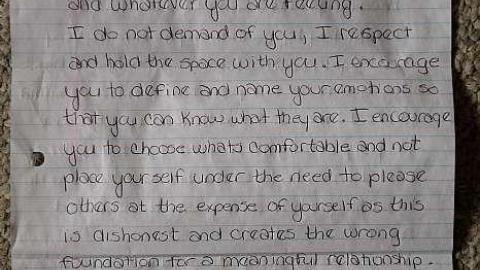 and whatever you are feeling.
I do not demand of you, I respect
and hold the space with you. I encourage
you to define and name your emotions so
that you can know what they are. I encourage
you to choose whats comfortable and not
place your self under the need to please
others at the expense of yourself as this
is dishonest and creates the wrong
foundation for a meaningful relationship.